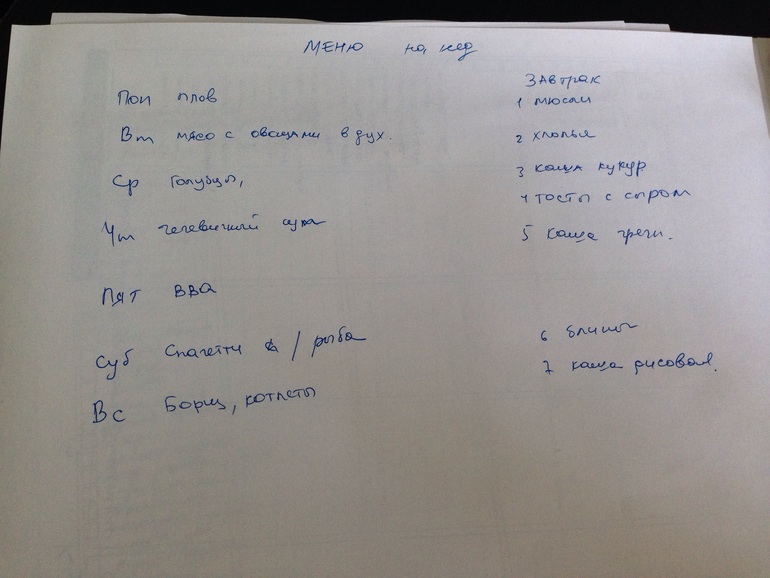 МЕНЮ на нед
Пон плов
Вт мясо с овощами в дух.
Ср Голубцы,
Чт чечевичный суп
Пят ВВА
Суб Спагетти / рыба
Вс Борщ, котлеты
ЗАВТРАК
1 мюсли
2 хлопья
3 каша кукур
4 тосты с сыром
5 каша гречн.
6 блины
7 каша рисовая.